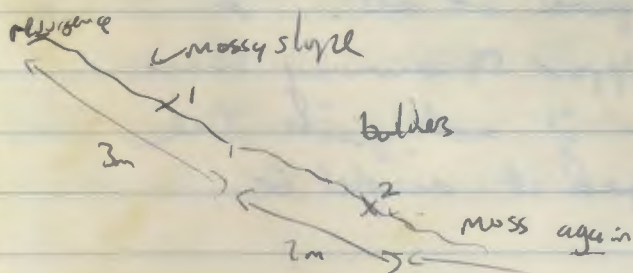 resurgence
mossy slope
1
boulders
3m
2
moss again
2m